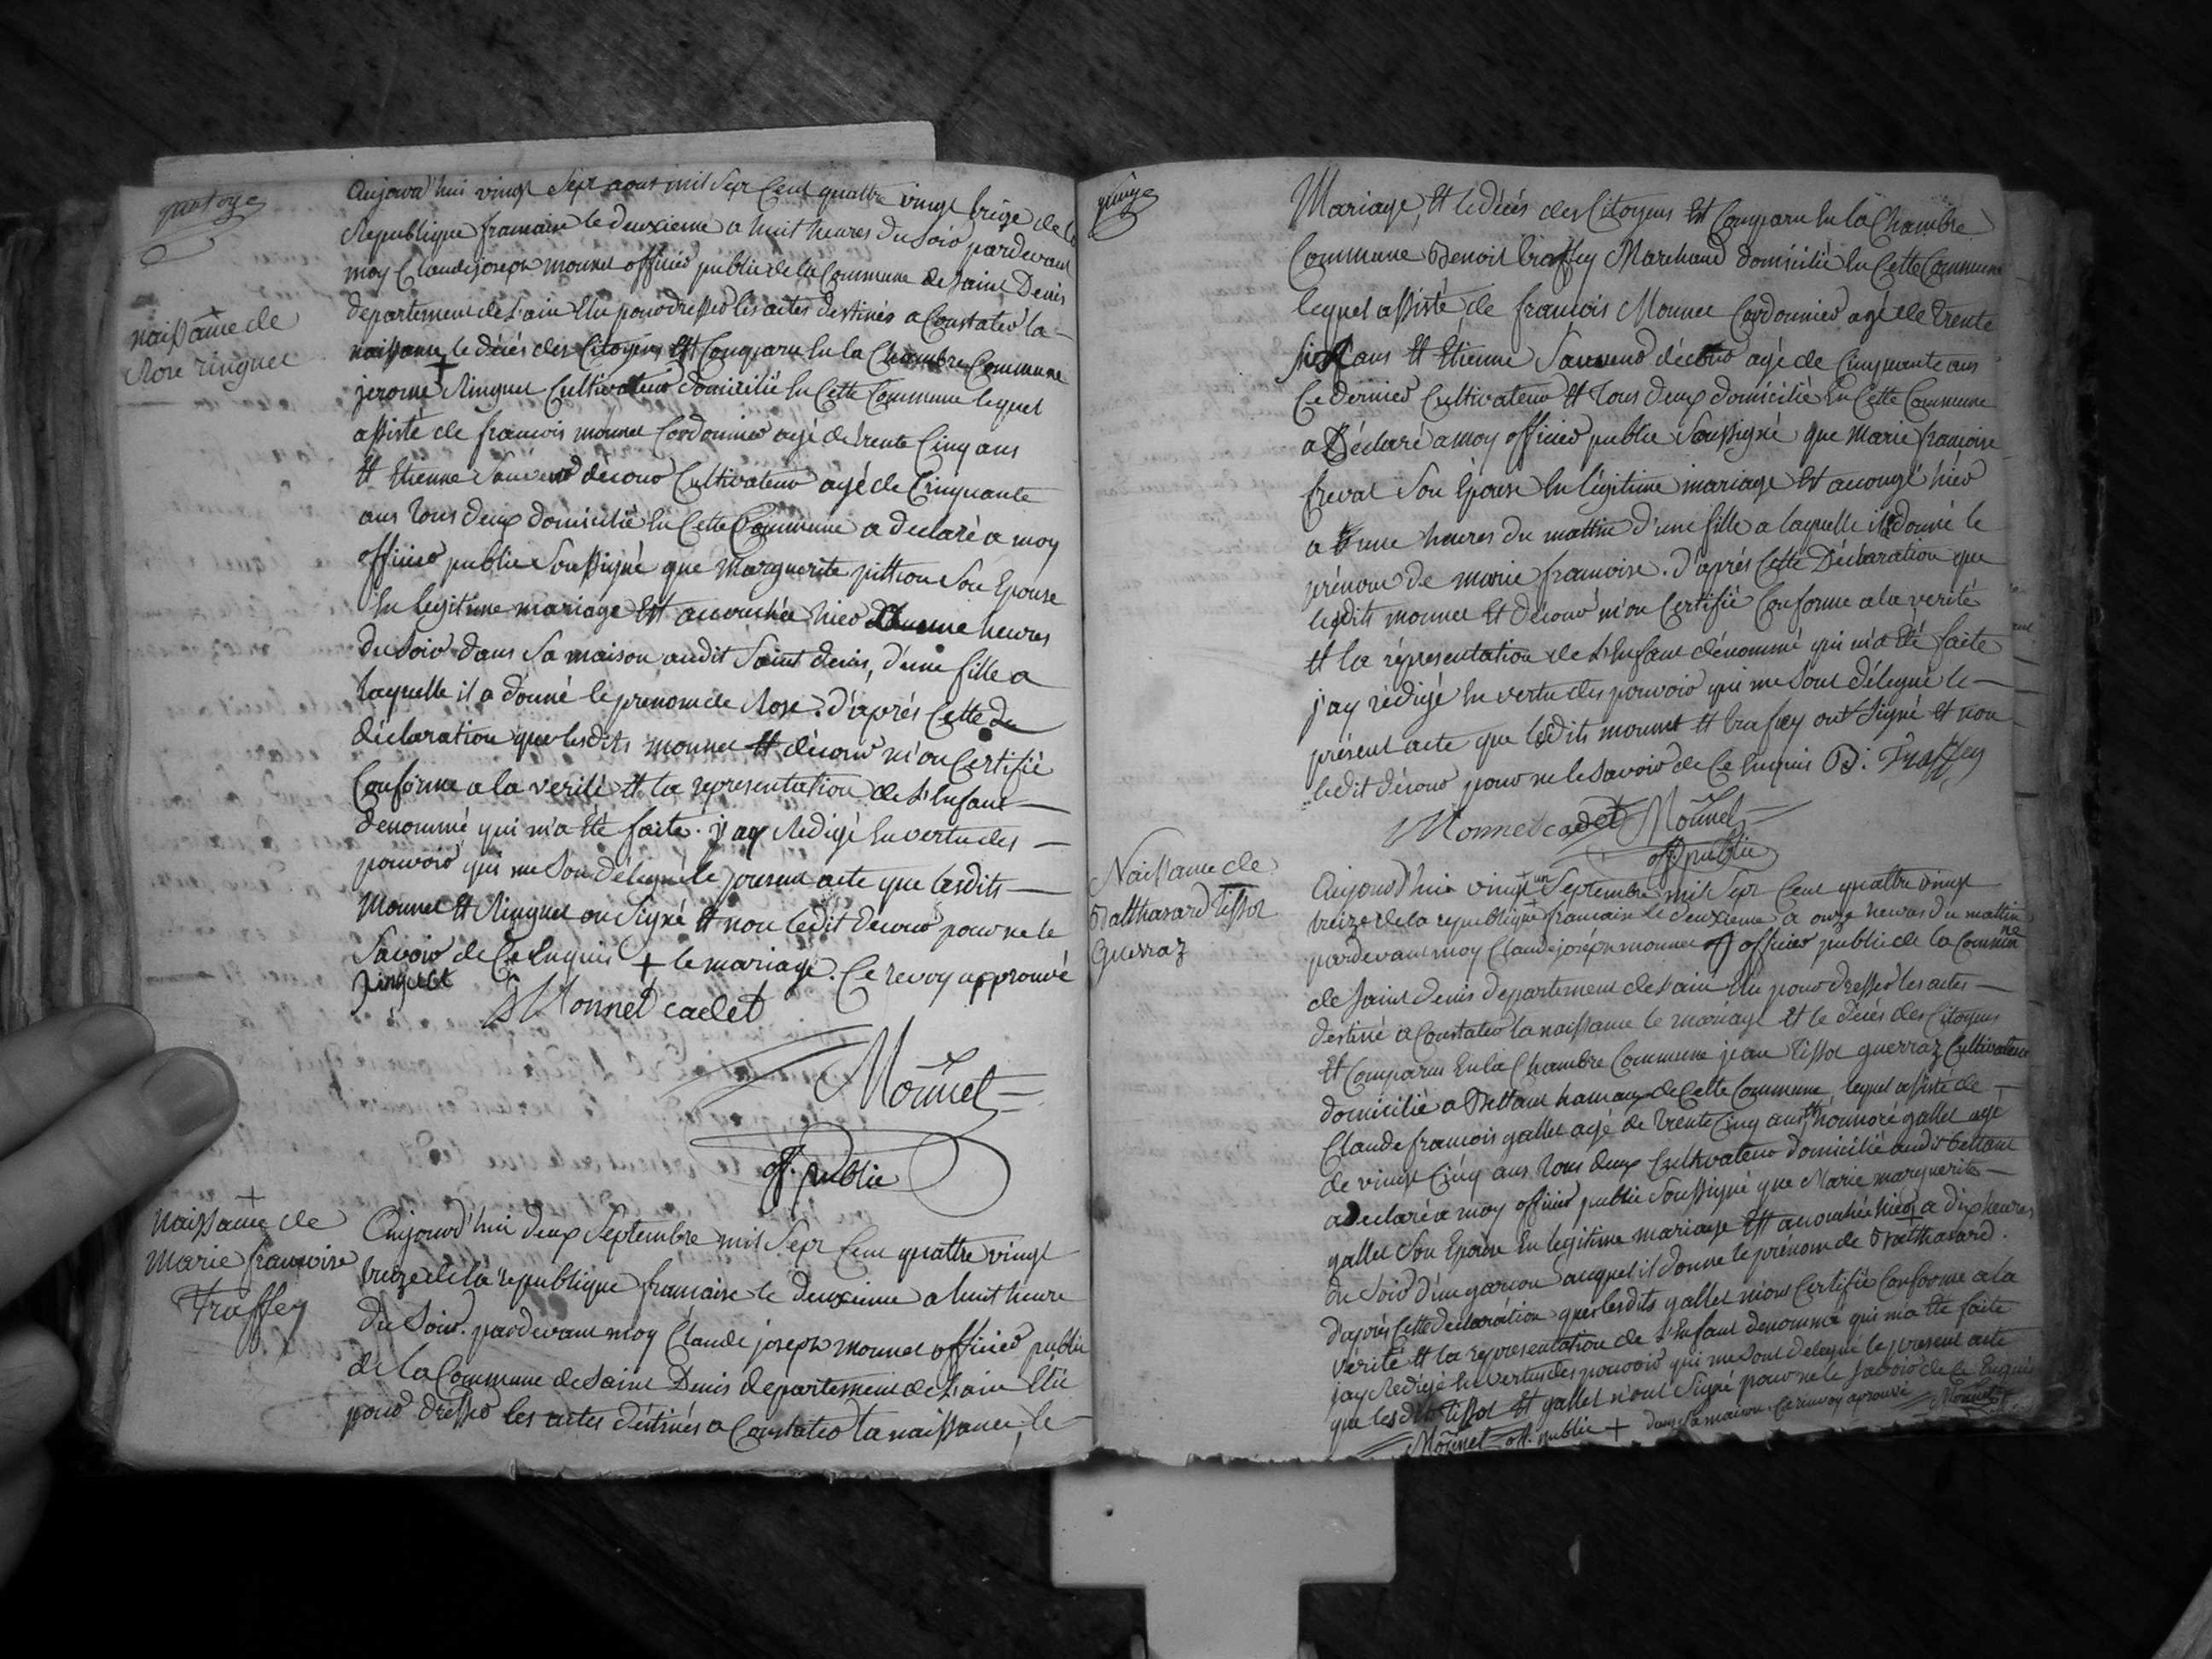 quatorze
naissance de
Rose ringuet
Aujourd'hui vingt sept aout mil sept Cent quattre vingt treize de la
Republique francaise le deuxieme a huit heures du soir pardevant
moy Claude joseph monnet officier public de la Commune de saint Denis
departement de l'ain Elu pour dresser les actes destinés a Constater la
naissance le décés des Citoyens Est Comparu En la Chambre Commune
jerome Ringuet Cultivateur domicilié En Cette Commune lequel
assisté de francois monnet Cordonnier agé de trente Cinq ans
Et Etienne décour Cultivateur agé de Cinquante
ans tous deux domicilié En Cette Commune a declaré a moy
officier public soussigné que Marguerite pittion son Epouse
En legitime mariage Est accouchée hier heures
du soir dans sa maison audit Saint denis, d'une fille a
laquelle il a donné le prenom de Rose. d'aprés Cette
déclaration que lesdits monnet Et décour m'on Certifié
Conforme a la verité Et la representation de L'Enfant
denommé qui m'a Eté faite. j'ay Redigé En vertu des
pouvoir qui me son délegué le present acte que lesdits
Monnet Et Ringuet on Signé Et non ledit decour pour ne le
Savoir de Ce Enquis + le mariage. Ce renvoy approuvé
ringuet
Monnet cadet
Monnet
off. public
+
Naissance de
Marie francoise
Traffey
Aujourd'hui deux Septembre mil Sept Cent quattre vingt
treize de la republique francaise le deuxieme a huit heure
du Soir. pardevant moy Claude joseph monnet officier public
de la Commune de Saint Denis departement de L'ain Elu
pour dresser les actes déstinés a Constater la naissance, le
quinze
Mariage, Et le décés des Citoyens Est Comparu En la Chambre
Commune Benoit traffey Marchand domicilié En Cette Commune
lequel assisté de francois Monnet Cordonnier agé de trente
ans Et Etienne décour agé de Cinquante ans
Ce dernier Cultivateur Et tous deux domicilié En Cette Commune
a Déclaré a moy officier public Soussigné que Marie francoise
freval Son Epouse En légitime mariage Est accouché hier
a une heures du mattin d'une fille a laquelle il donné le
prénom de marie francoise. d'aprés Cette Déclaration que
lesdits monnet Et décour m'on Certifié Conforme a la verité
Et la répresentation de L'Enfant dénommé qui m'a Eté faite
j'ay rédigé En vertu des pouvoir qui me sont délegué le
présent acte que lesdits monnet Et trafey ont Signé Et non
ledit décour pour ne le savoir de Ce Enquis B: Traffey
Monnet cadet Monnet
off. public
Naissance de
Balthazard tissot
Guerraz
Aujourd'hui vingt un Septembre mil Sept Cent quattre vingt
treize de la republique francaise le deuxieme a onze heures du mattin
pardevant moy Claude joseph monnet officier public de la Commune
de saint denis departement de l'ain Elu pour dresser les actes
destiné a Constater la naissance le mariage Et le décés des Citoyens
Et Comparu En la Chambre Commune jean tissot guerraz Cultivateur
domicilié a Bettant hameau de Cette Commune, lequel assisté de
Claude francois gallet agé de trente Cinq ans Et honnoré gallet agé
de vingt Cinq ans tous deux Cultivateur domicilié audit bettant
a Declaré a moy officier public Soussigné que Marie marguerite
gallet Son Epouse En legitime mariage Est accouchée hier + a dix heures
du Soir d'un garcon auquel il donne le prénom de Balthazard.
d'aprés Cette declaration que lesdits gallet m'ont Certifié Conforme a la
vérité Et la representation de L'Enfant denommé qui m'a Eté faite
j'ay Redigé En vertu des pouvoir qui me sont delegué le present acte
que lesdits tissot Et gallet n'ont Signé pour ne le Savoir de Ce Enquis
Monnet off. public + dans sa maison Ce renvoy aprouvé Monnet